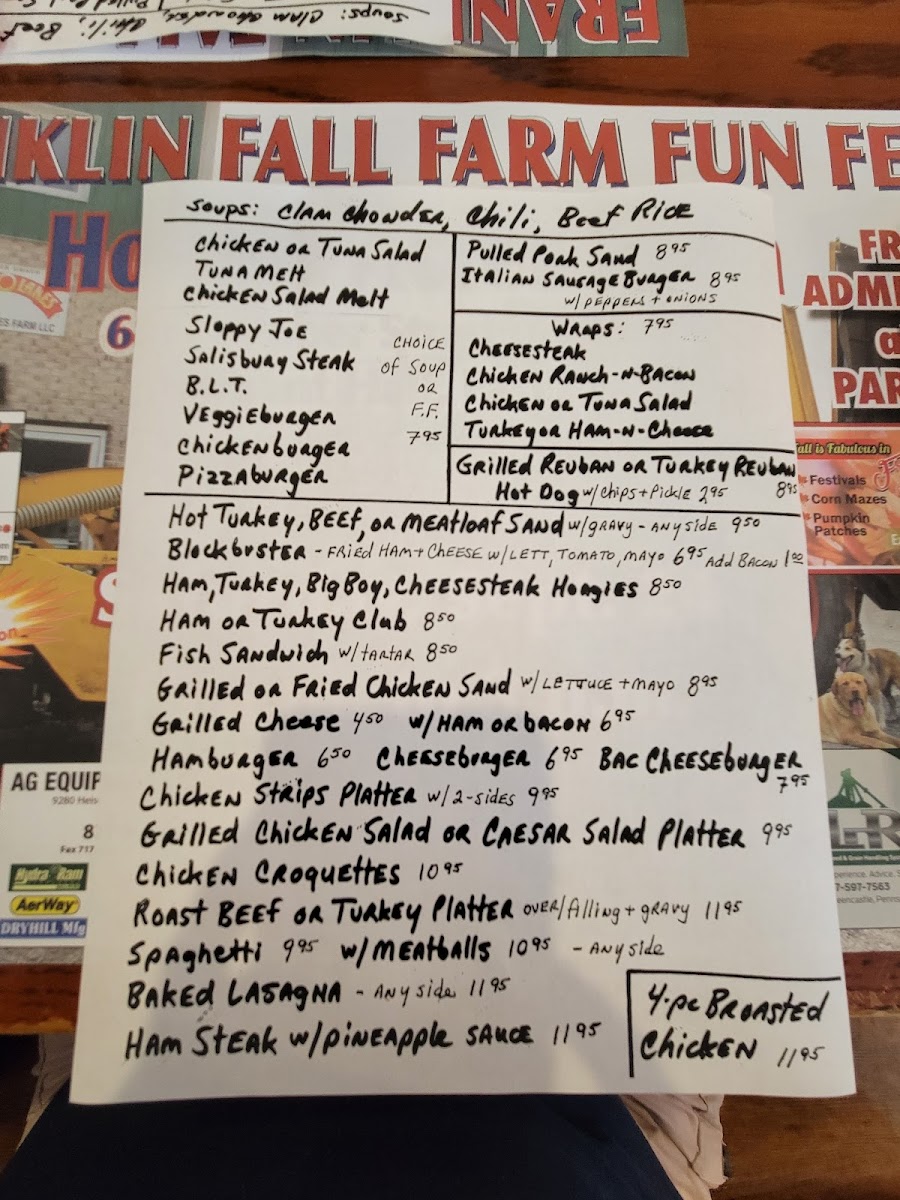 FRANKLIN FALL
Soups: Clam Chowder, Chili, Beef
KLIN FALL FARM FUN FE
Ho
6
ES FARM LLC
FR
ADMI
a
PAR
Soups: Clam Chowder, Chili, Beef Rice
Chicken or Tuna Salad
Tuna Melt
Chicken Salad Melt
Sloppy Joe
Salisbury Steak
B.L.T.
Veggieburger
Chickenburger
Pizzaburger
Choice
of Soup
or
F.F.
7.95
Pulled Pork Sand 8.95
Italian Sausage Burger 8.95
w/ Peppers + Onions
Wraps: 7.95
Cheesesteak
Chicken Ranch-N-Bacon
Chicken or Tuna Salad
Turkey or Ham-N-Cheese
Grilled Reuban or Turkey Reuban
8.95
Hot Dog w/ Chips + Pickle 2.95
Hot Turkey, Beef, or Meatloaf Sand w/ gravy - any side 9.50
Blockbuster - Fried Ham + Cheese w/ Lett, Tomato, Mayo 6.95 Add Bacon 1.00
Ham, Turkey, Big Boy, Cheesesteak Hoagies 8.50
Ham or Turkey Club 8.50
Fish Sandwich w/ tartar 8.50
Grilled or Fried Chicken Sand w/ Lettuce + Mayo 8.95
Grilled Cheese 4.50 w/ Ham or bacon 6.95
Hamburger 6.50 Cheeseburger 6.95 Bac Cheeseburger
7.95
Chicken Strips Platter w/ 2-sides 9.95
Grilled Chicken Salad or Caesar Salad Platter 9.95
Chicken Croquettes 10.95
Roast Beef or Turkey Platter over/filling + gravy 11.95
Spaghetti 9.95 w/ Meatballs 10.95 - any side
Baked Lasagna - any side 11.95
Ham Steak w/ pineapple sauce 11.95
4-pc Broasted
Chicken 11.95
Fall is Fabulous in
Festivals
Corn Mazes
Pumpkin
Patches
AG EQUIP
8
Fax 717
Hydra Ram
AerWay
DRYHILL Mfg
LR
7-597-7563